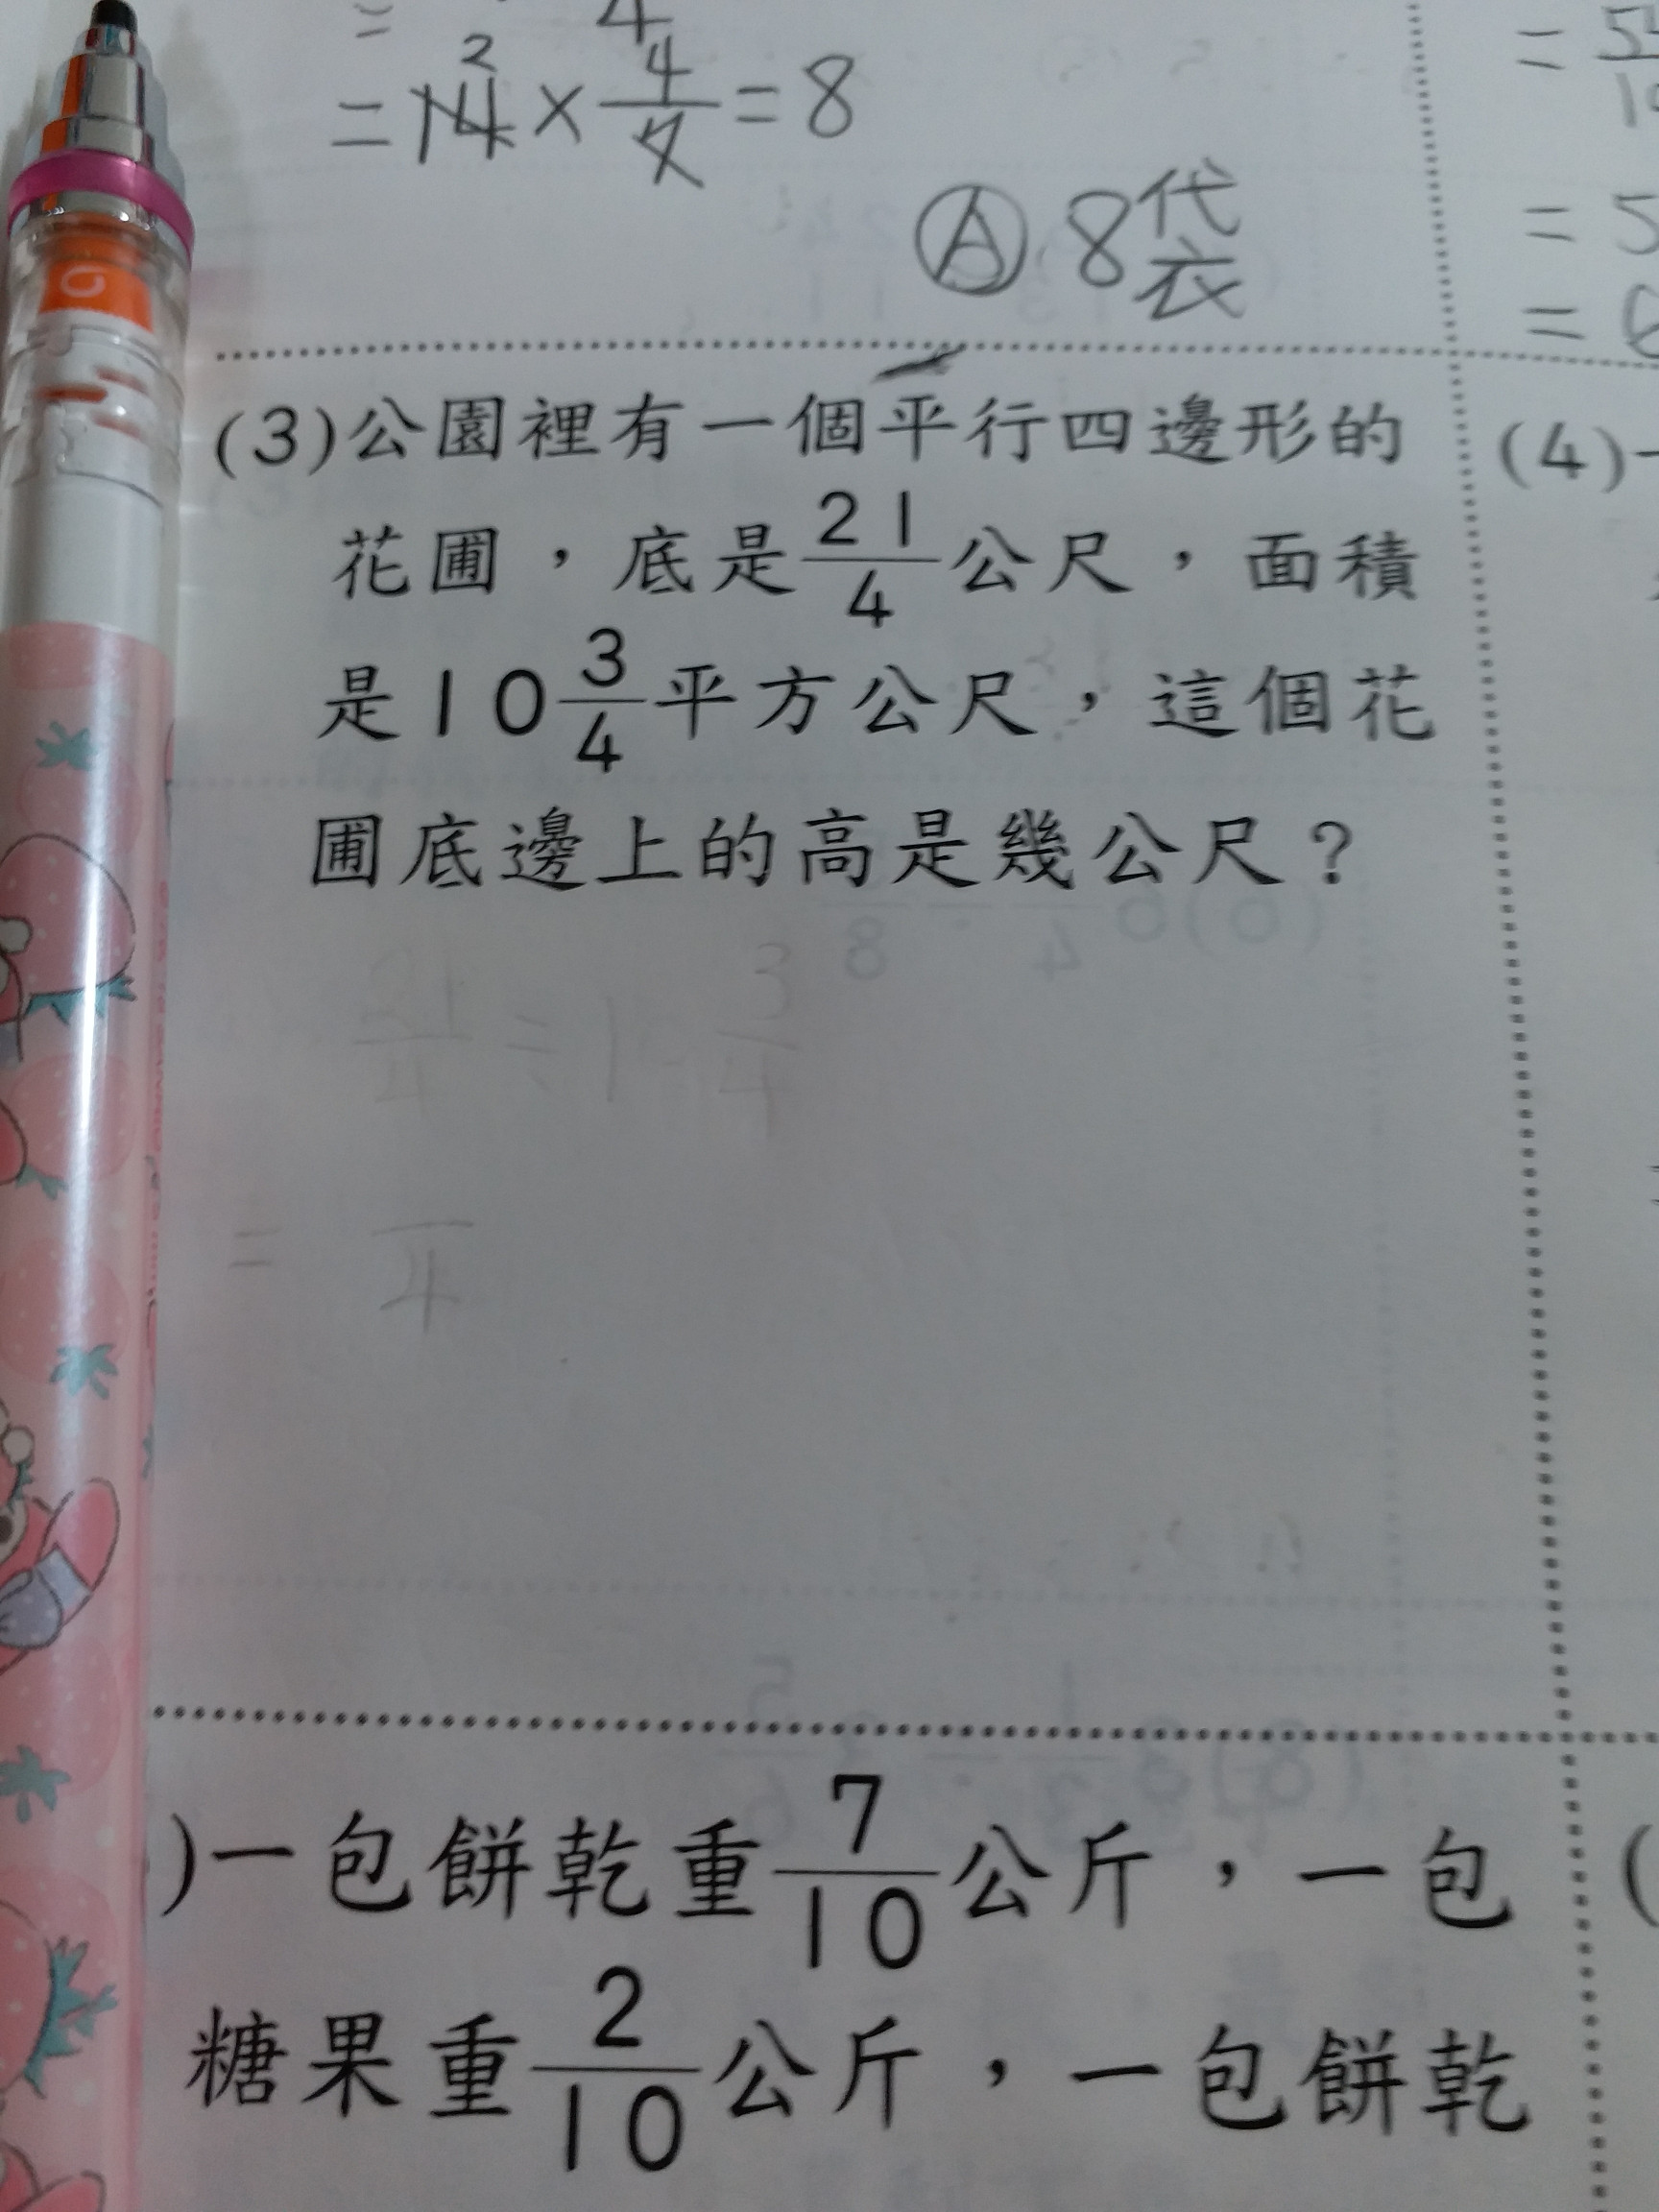 = 4
2
= 14 × 4/7 = 8
Ⓐ 8 代衣
= 5
= 
(3)公園裡有一個平行四邊形的
花圃，底是21/4公尺，面積
是10 3/4平方公尺，這個花
圃底邊上的高是幾公尺？
(4)一
)一包餅乾重7/10公斤，一包
糖果重2/10公斤，一包餅乾
(